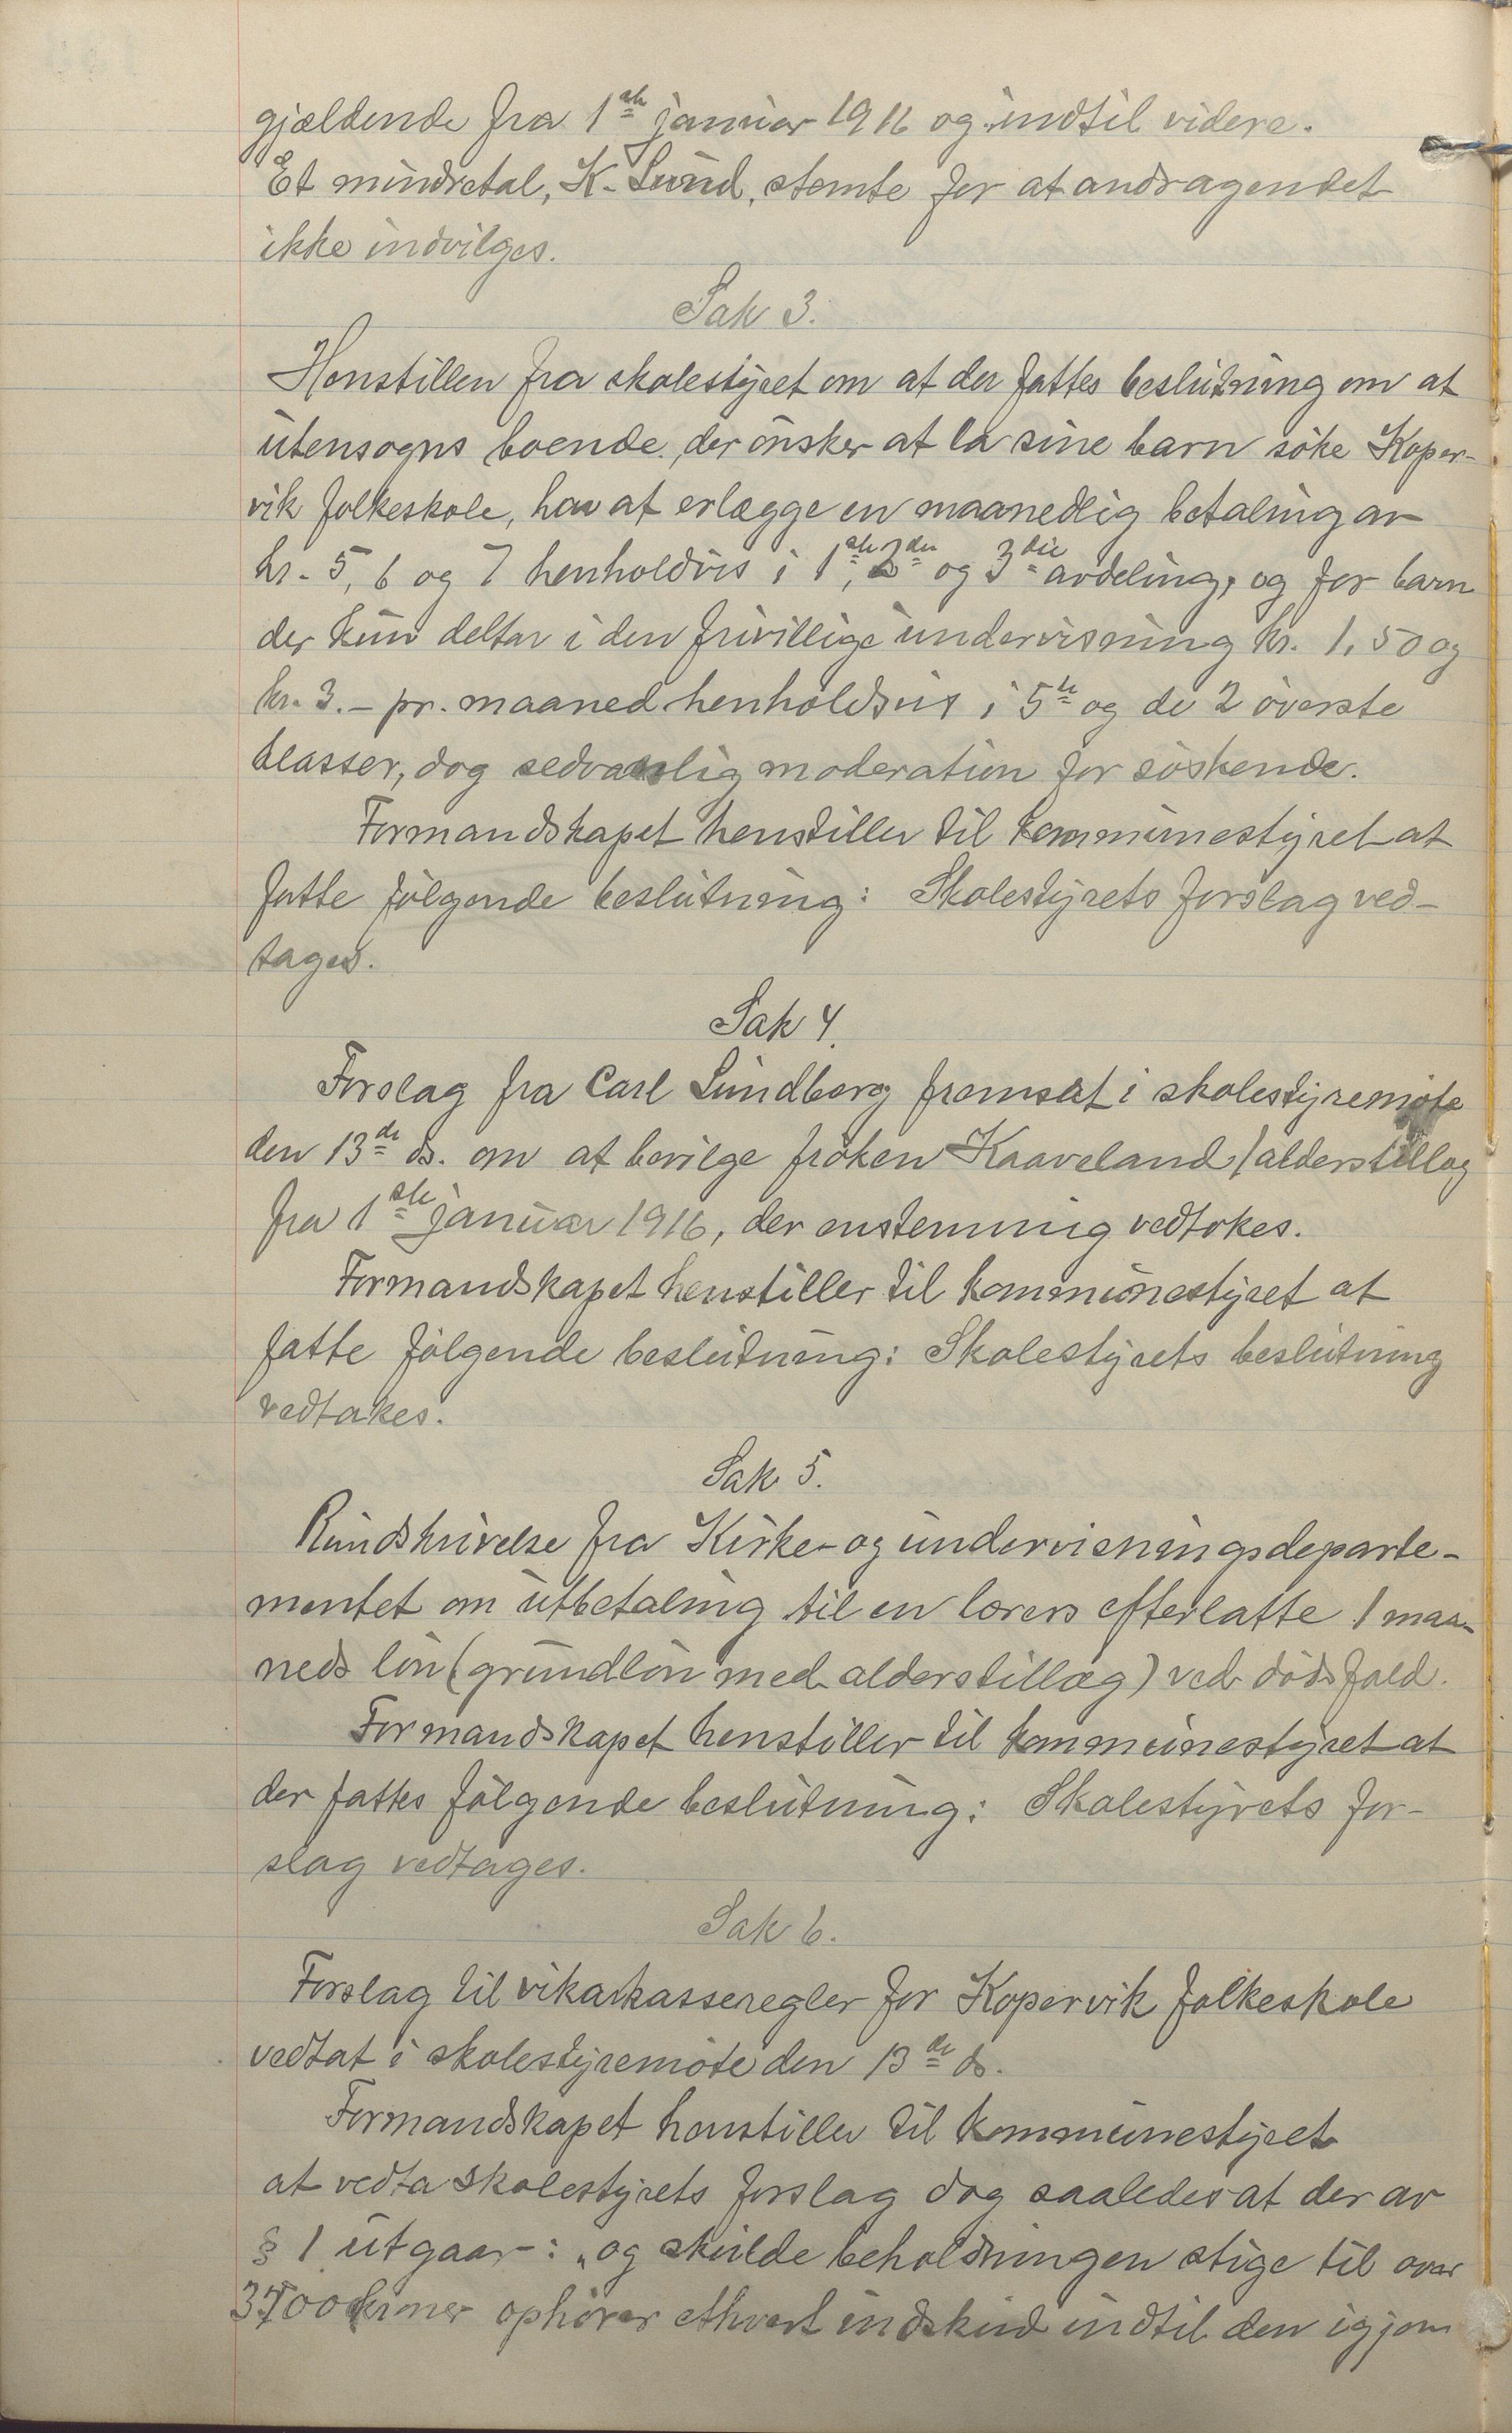 gjældende fra 1ste januar 1916 og indtil videre.
Et mindretal, K. Lund, stemte for at andragendet
ikke indvilges.
Sak 3.
Henstillen fra skolestyret om at der fattes beslutning om at
utensogns boende, der ønsker at la sine barn søke Koper-
vik folkeskole, har at erlægge en maanedlig betaling av
kr. 5, 6 og 7 henholdvis i 1ste, 2den og 3die avdeling, og for barn
der kun deltar i den frivillige undervisning kr. 1,50 og
kr. 3.- pr. maaned henholdsvis i 5te og de 2 øverste
klasser, dog sedvanlig moderation for søskende.
Formandskapet henstiller til kommunestyret at
fatte følgende beslutning: Skolestyrets forslag ved-
tages.
Sak 4.
Forslag fra Carl Lundberg fremsat i skolestyremøte
den 13de ds. om at bevilge frøken Kaaveland 1 alderstillæg
fra 1ste januar 1916, der enstemmig vedtokes.
Formandskapet henstiller til kommunestyret at
fatte følgende beslutning: Skolestyrets beslutning
vedtakes.
Sak 5.
Rundskrivelse fra Kirke- og undervisningsdeparte-
mentet om utbetaling til en lærers efterlatte 1 maa-
neds løn (grundløn med alderstillæg) ved dødsfald.
Formandskapet henstiller til kommunestyret at
der fattes følgende beslutning: Skolestyrets for-
slag vedtages.
Sak 6.
Forslag til vikarkasseregler for Kopervik folkeskole
vedtat i skolestyremøte den 13de ds.
Formandskapet henstiller til kommunestyret
at vedta skolestyrets forslag dog saaledes at der av
§ 1 utgaar: „og skulde beholdningen stige til over
kroner ophører ethvert indskud indtil den igjem